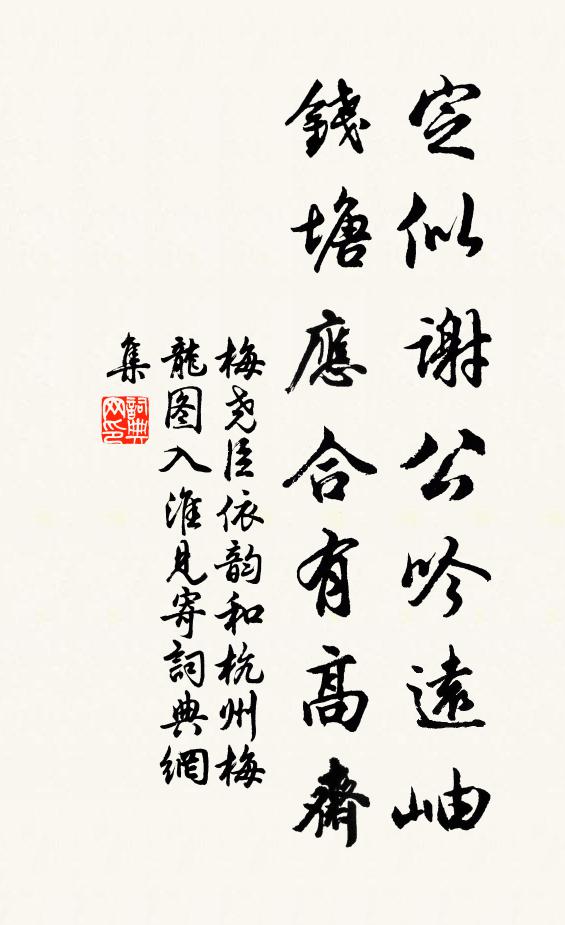 定似謝公吟遠岫
錢塘應合有高齋
梅堯臣依韵和杭州梅
龍图入淮見寄詞典網
集
詞典
网印